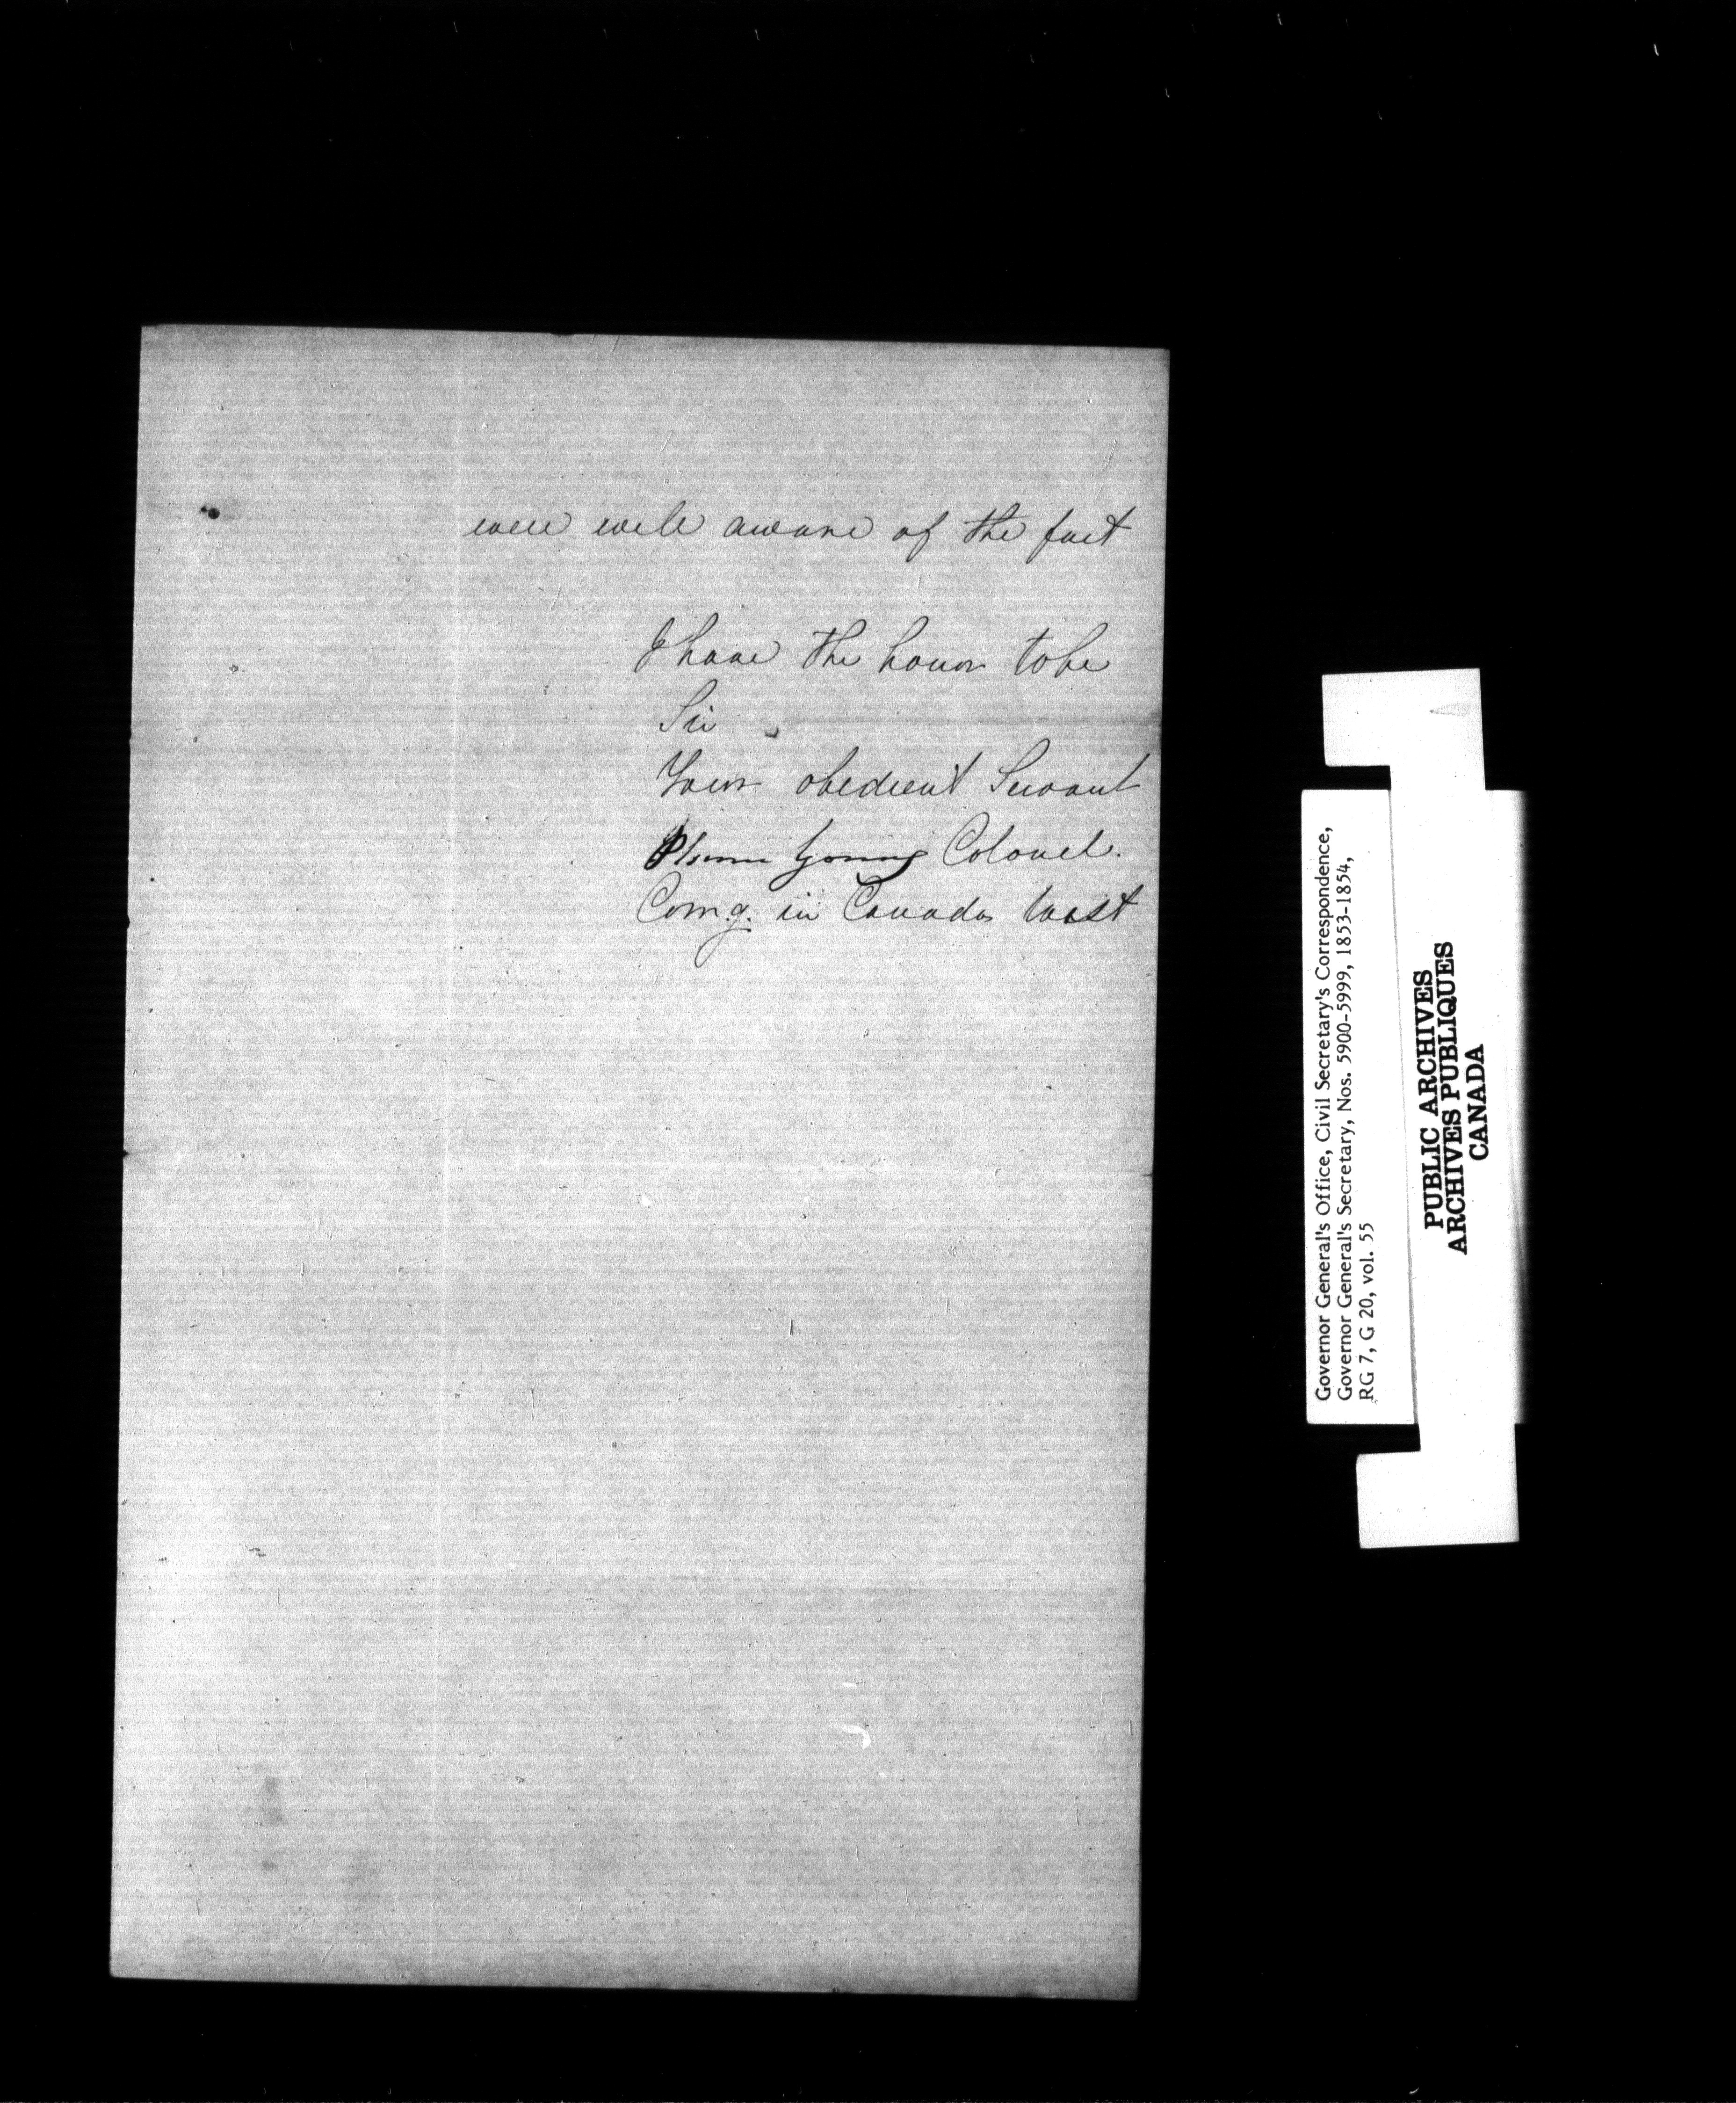 were well aware of the fact
I have the honor to be
Sir
Your obedient Servant
Plomer Young Colonel.
Comg. in Canada West
Governor General's Office, Civil Secretary's Correspondence,
Governor General's Secretary, Nos. 5900-5999, 1853-1854,
RG 7, G 20, vol. 55
PUBLIC ARCHIVES
ARCHIVES PUBLIQUES
CANADA